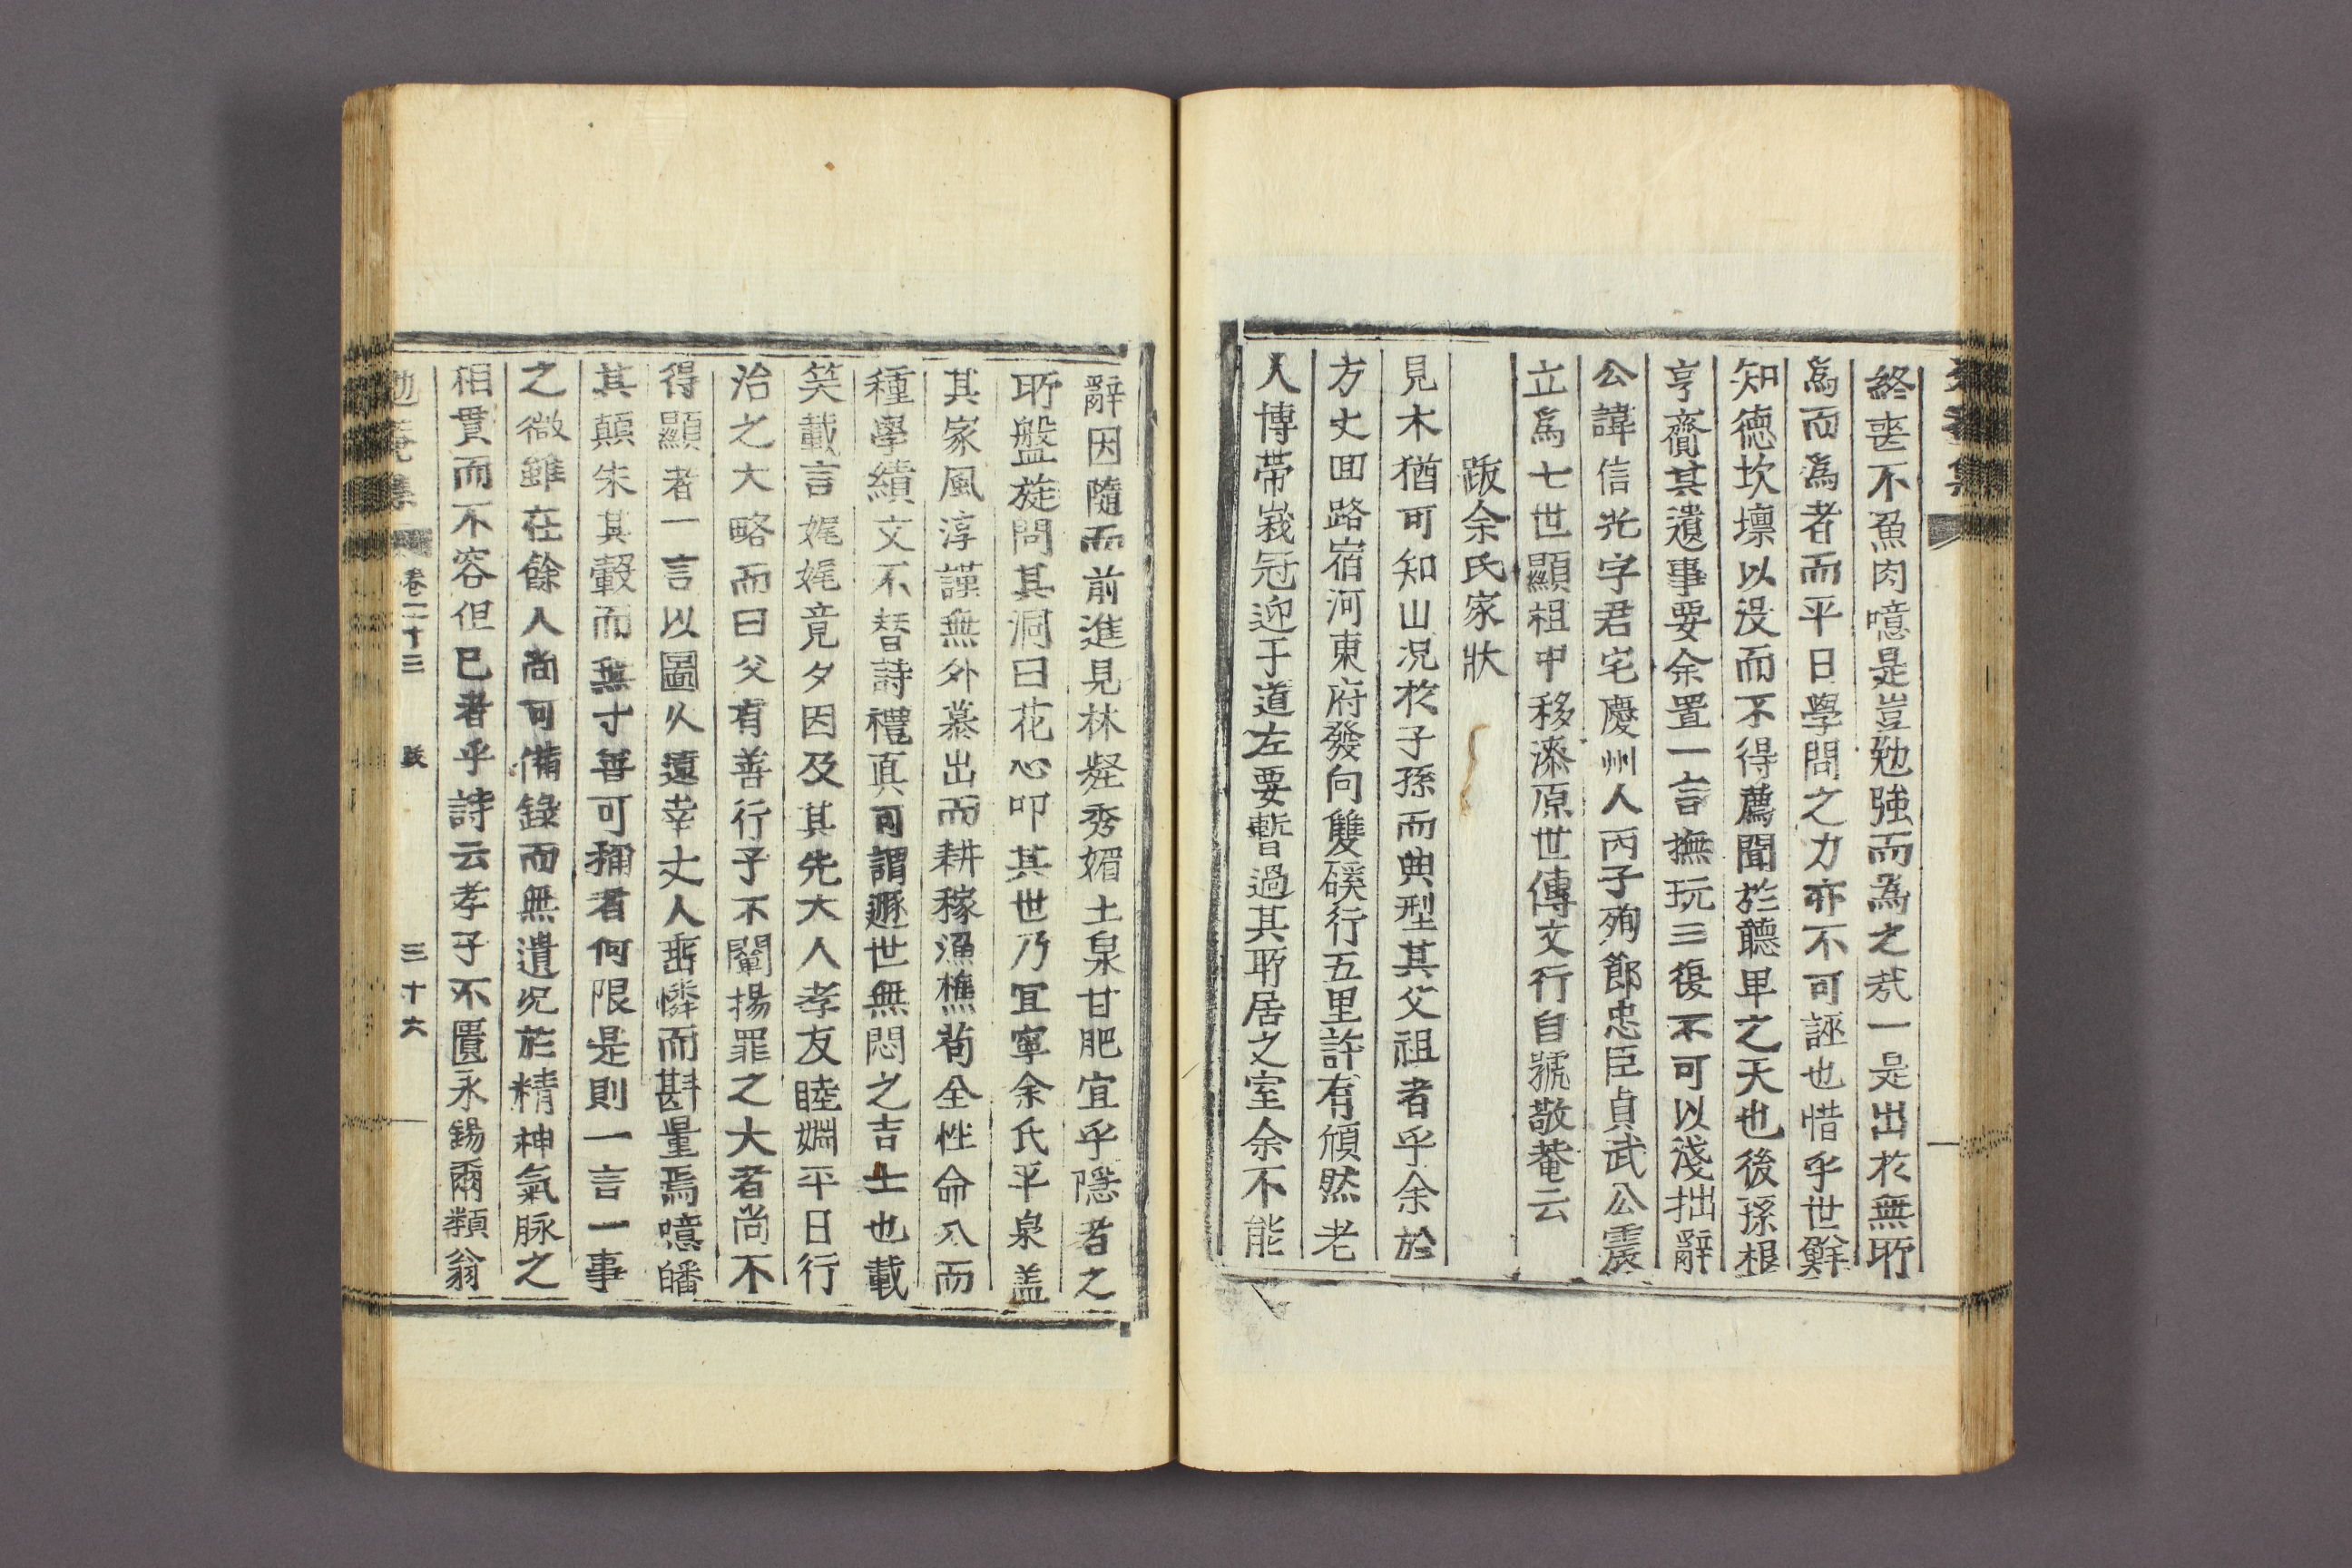 終喪不魚肉噫是豈勉強而為之哉一是出於無所
爲而為者而平日學問之力亦不可誣也惜乎世鮮
知德坎壈以沒而不得薦聞於聽卑之天也後孫根
亨齎其遺事要余置一言撫玩三復不可以淺拙辭
公諱信光字君宅慶州人丙子殉節忠臣貞武公震
立爲七世顯祖中移漆原世傳文行自號敬菴云
跋余氏家狀
見木猶可知山况於子孫而典型其父祖者乎余於
方丈回路宿河東府發向雙磎行五里許有頎然老
人博帶峩冠迎于道左要暫過其所居之室余不能
辭因隨而前進見林壑秀媚土泉甘肥宜乎隱者之
所盤旋問其洞曰花心叩其世乃宜寧余氏平泉盖
其家風淳謹無外慕出而耕稼漁樵苟全性命入而
種學績文不替詩禮真可謂遯世無悶之吉士也載
笑載言娓娓竟夕因及其先大人孝友睦婣平日行
治之大略而曰父有善行子不闡揚罪之大者尚不
得顯者一言以圖久遠幸丈人垂憐而斟量焉噫皤
其顛朱其轂而無寸善可稱者何限是則一言一事
之微雖在餘人尚可備錄而無遺况於精神氣脉之
相貫而不容但已者乎詩云孝子不匱永錫爾類翁
勉菴集 卷二十三 跋 三十六